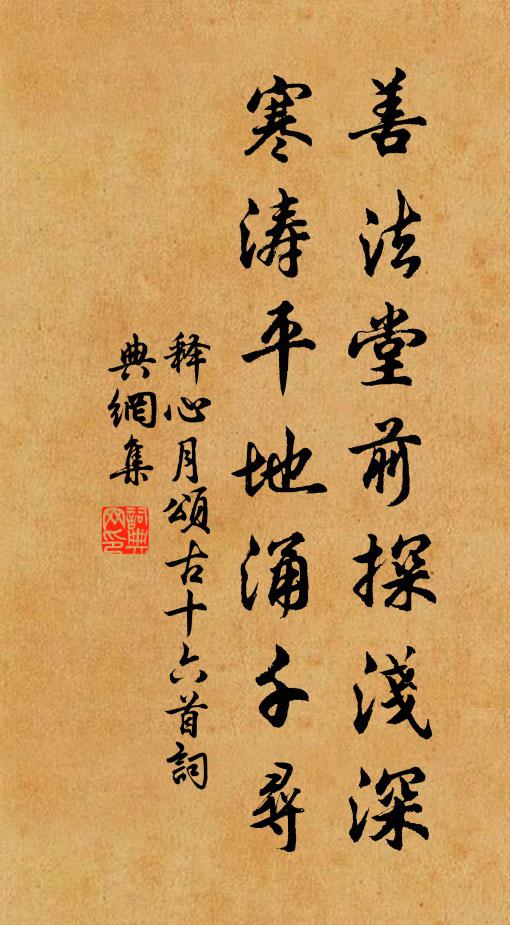 善法堂前探淺深
寒涛平地涌千尋
释心月頌古十六首詞
典網集
詞典